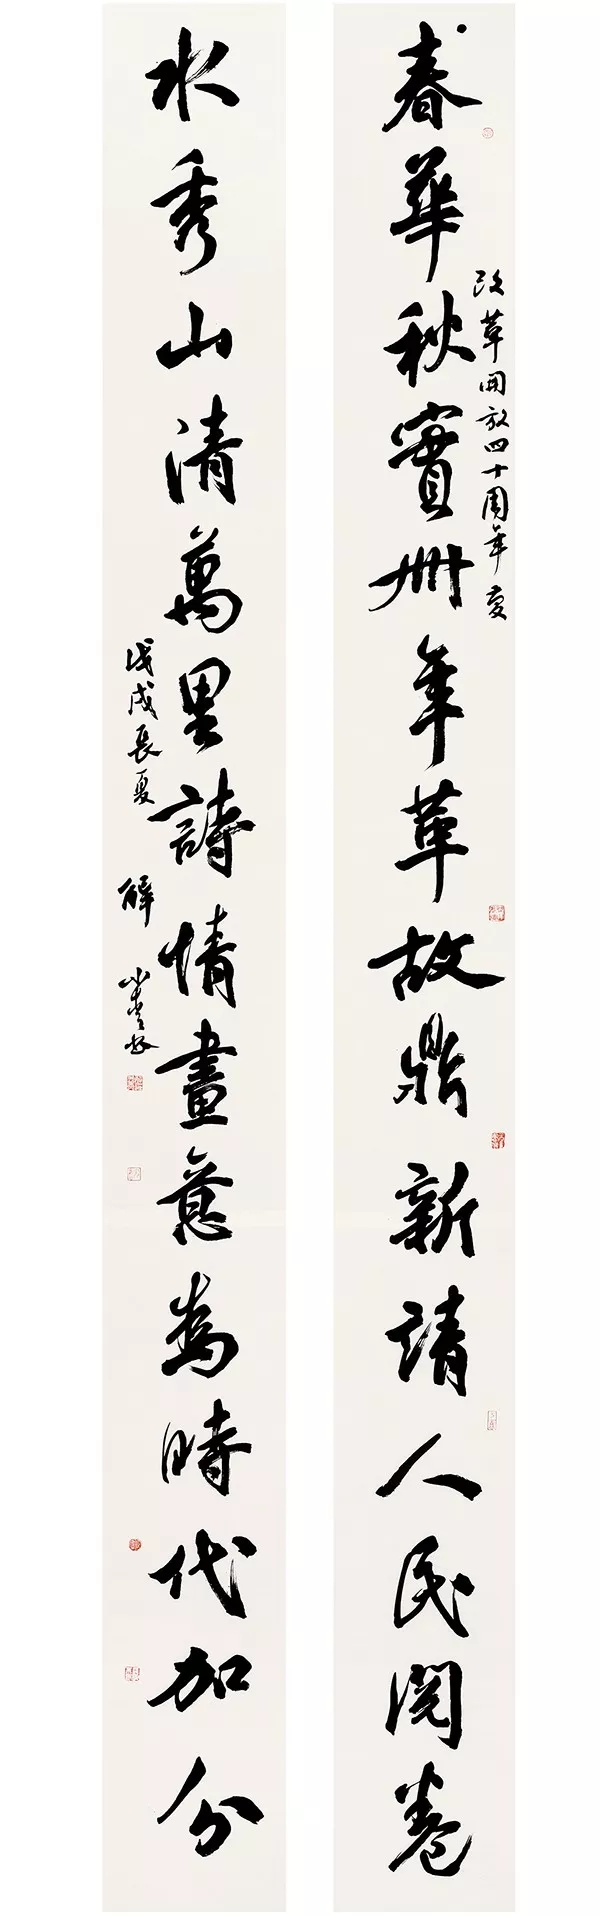 春華秋實卌年革故鼎新請人民閱卷
改革開放四十周年
水秀山清萬里詩情畫意為時代加分
戊戌長夏 解小青